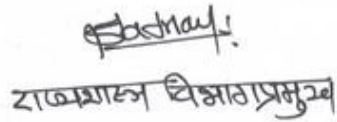 राज्यशास्त्र विभागप्रमुख